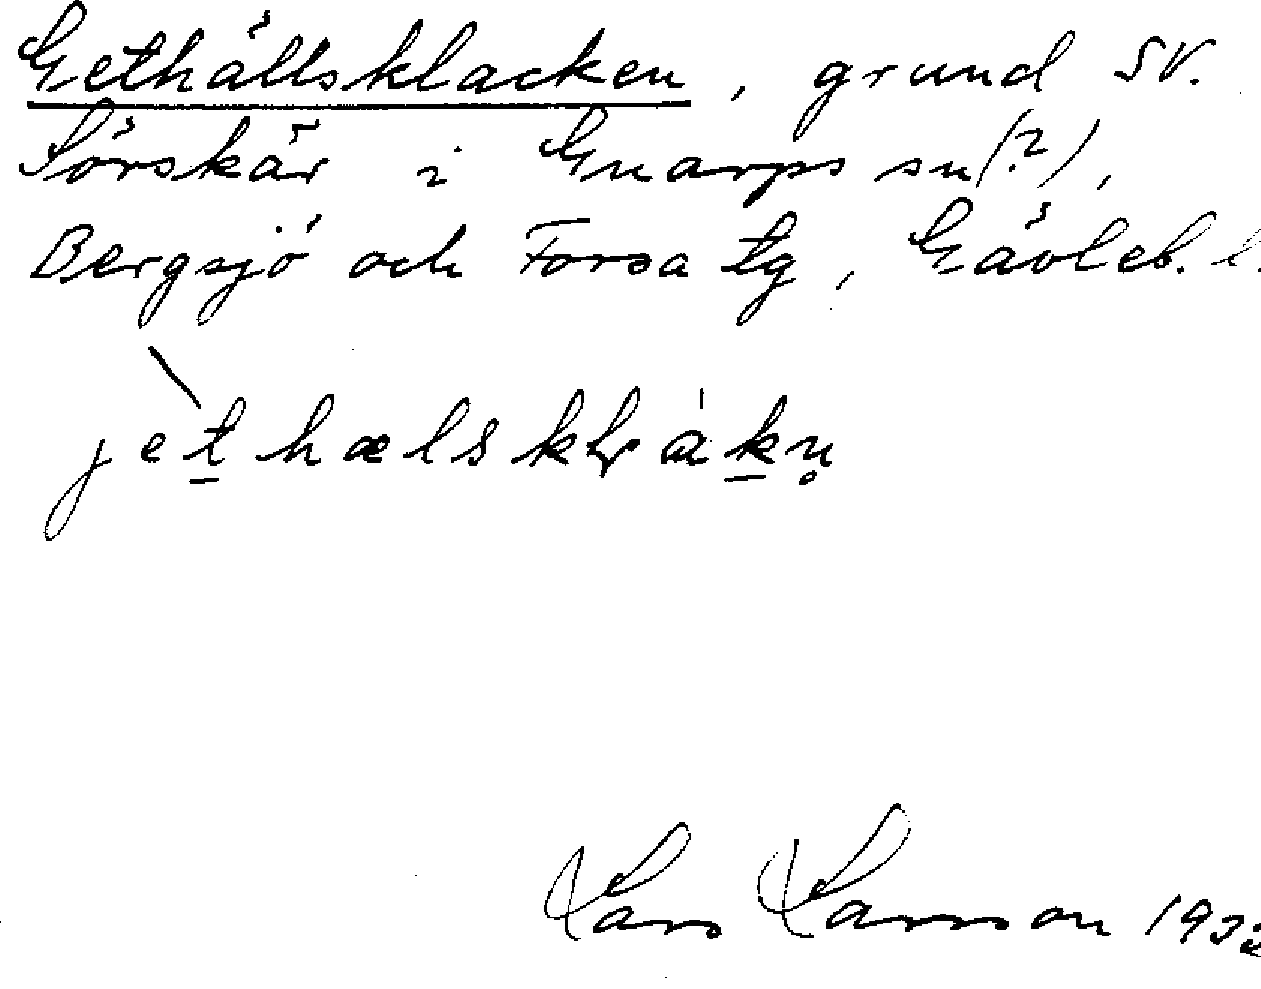 Gethällsklacken, grund SV.
Sörskär i Gnarps sn(?),
Bergsjö och Forsa tg, Gävleb. l.
jethælsklakn̥
Lars Larsson 19